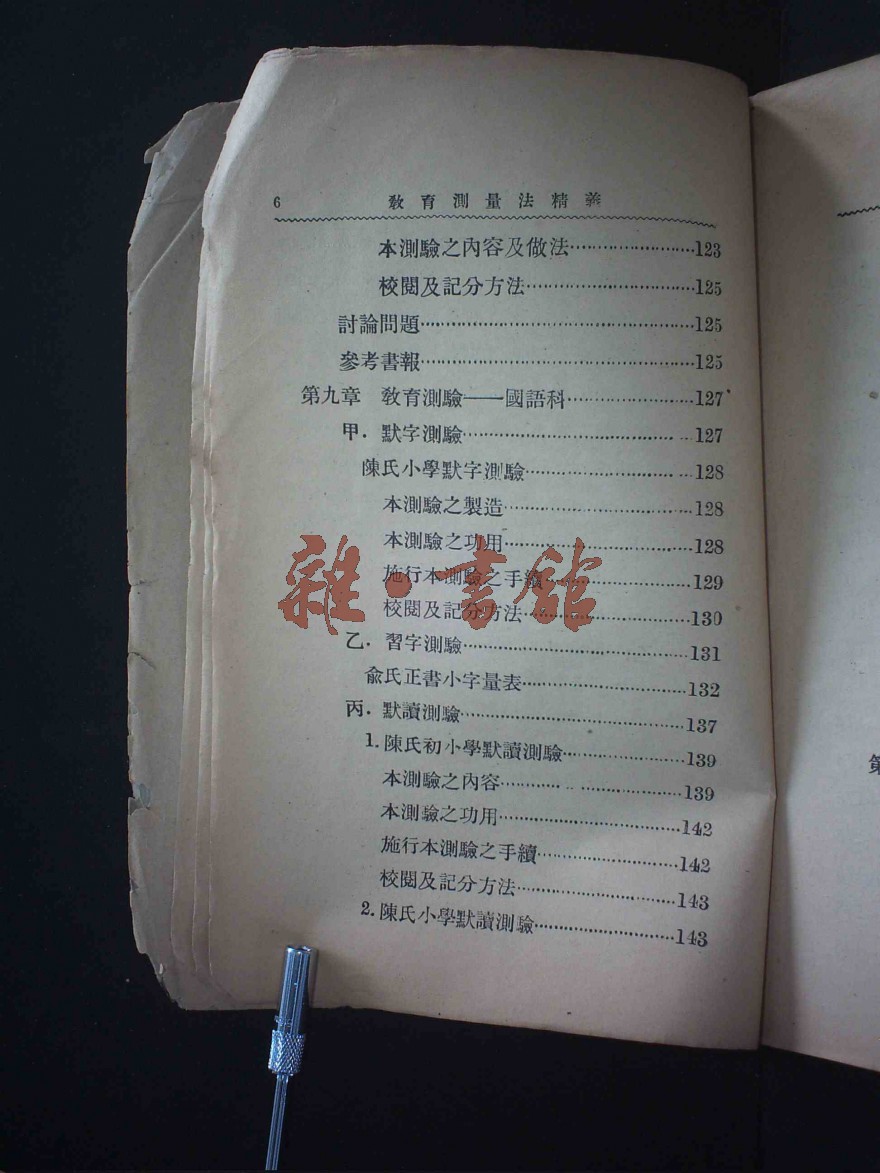 6 教育測量法精義
本測驗之內容及做法……………………123
校閱及記分方法……………………125
討論問題……………………125
參考書報……………………125
第九章 教育測驗——國語科……………………127
甲. 默字測驗……………………127
陳氏小學默字測驗……………………128
本測驗之製造……………………128
本測驗之功用……………………128
施行本測驗之手續……………………129
校閱及記分方法……………………130
乙. 習字測驗……………………131
俞氏正書小字量表……………………132
丙. 默讀測驗……………………137
1. 陳氏初小學默讀測驗……………………139
本測驗之內容……………………139
本測驗之功用……………………142
施行本測驗之手續……………………142
校閱及記分方法……………………143
2. 陳氏小學默讀測驗……………………143
雜·書館
第